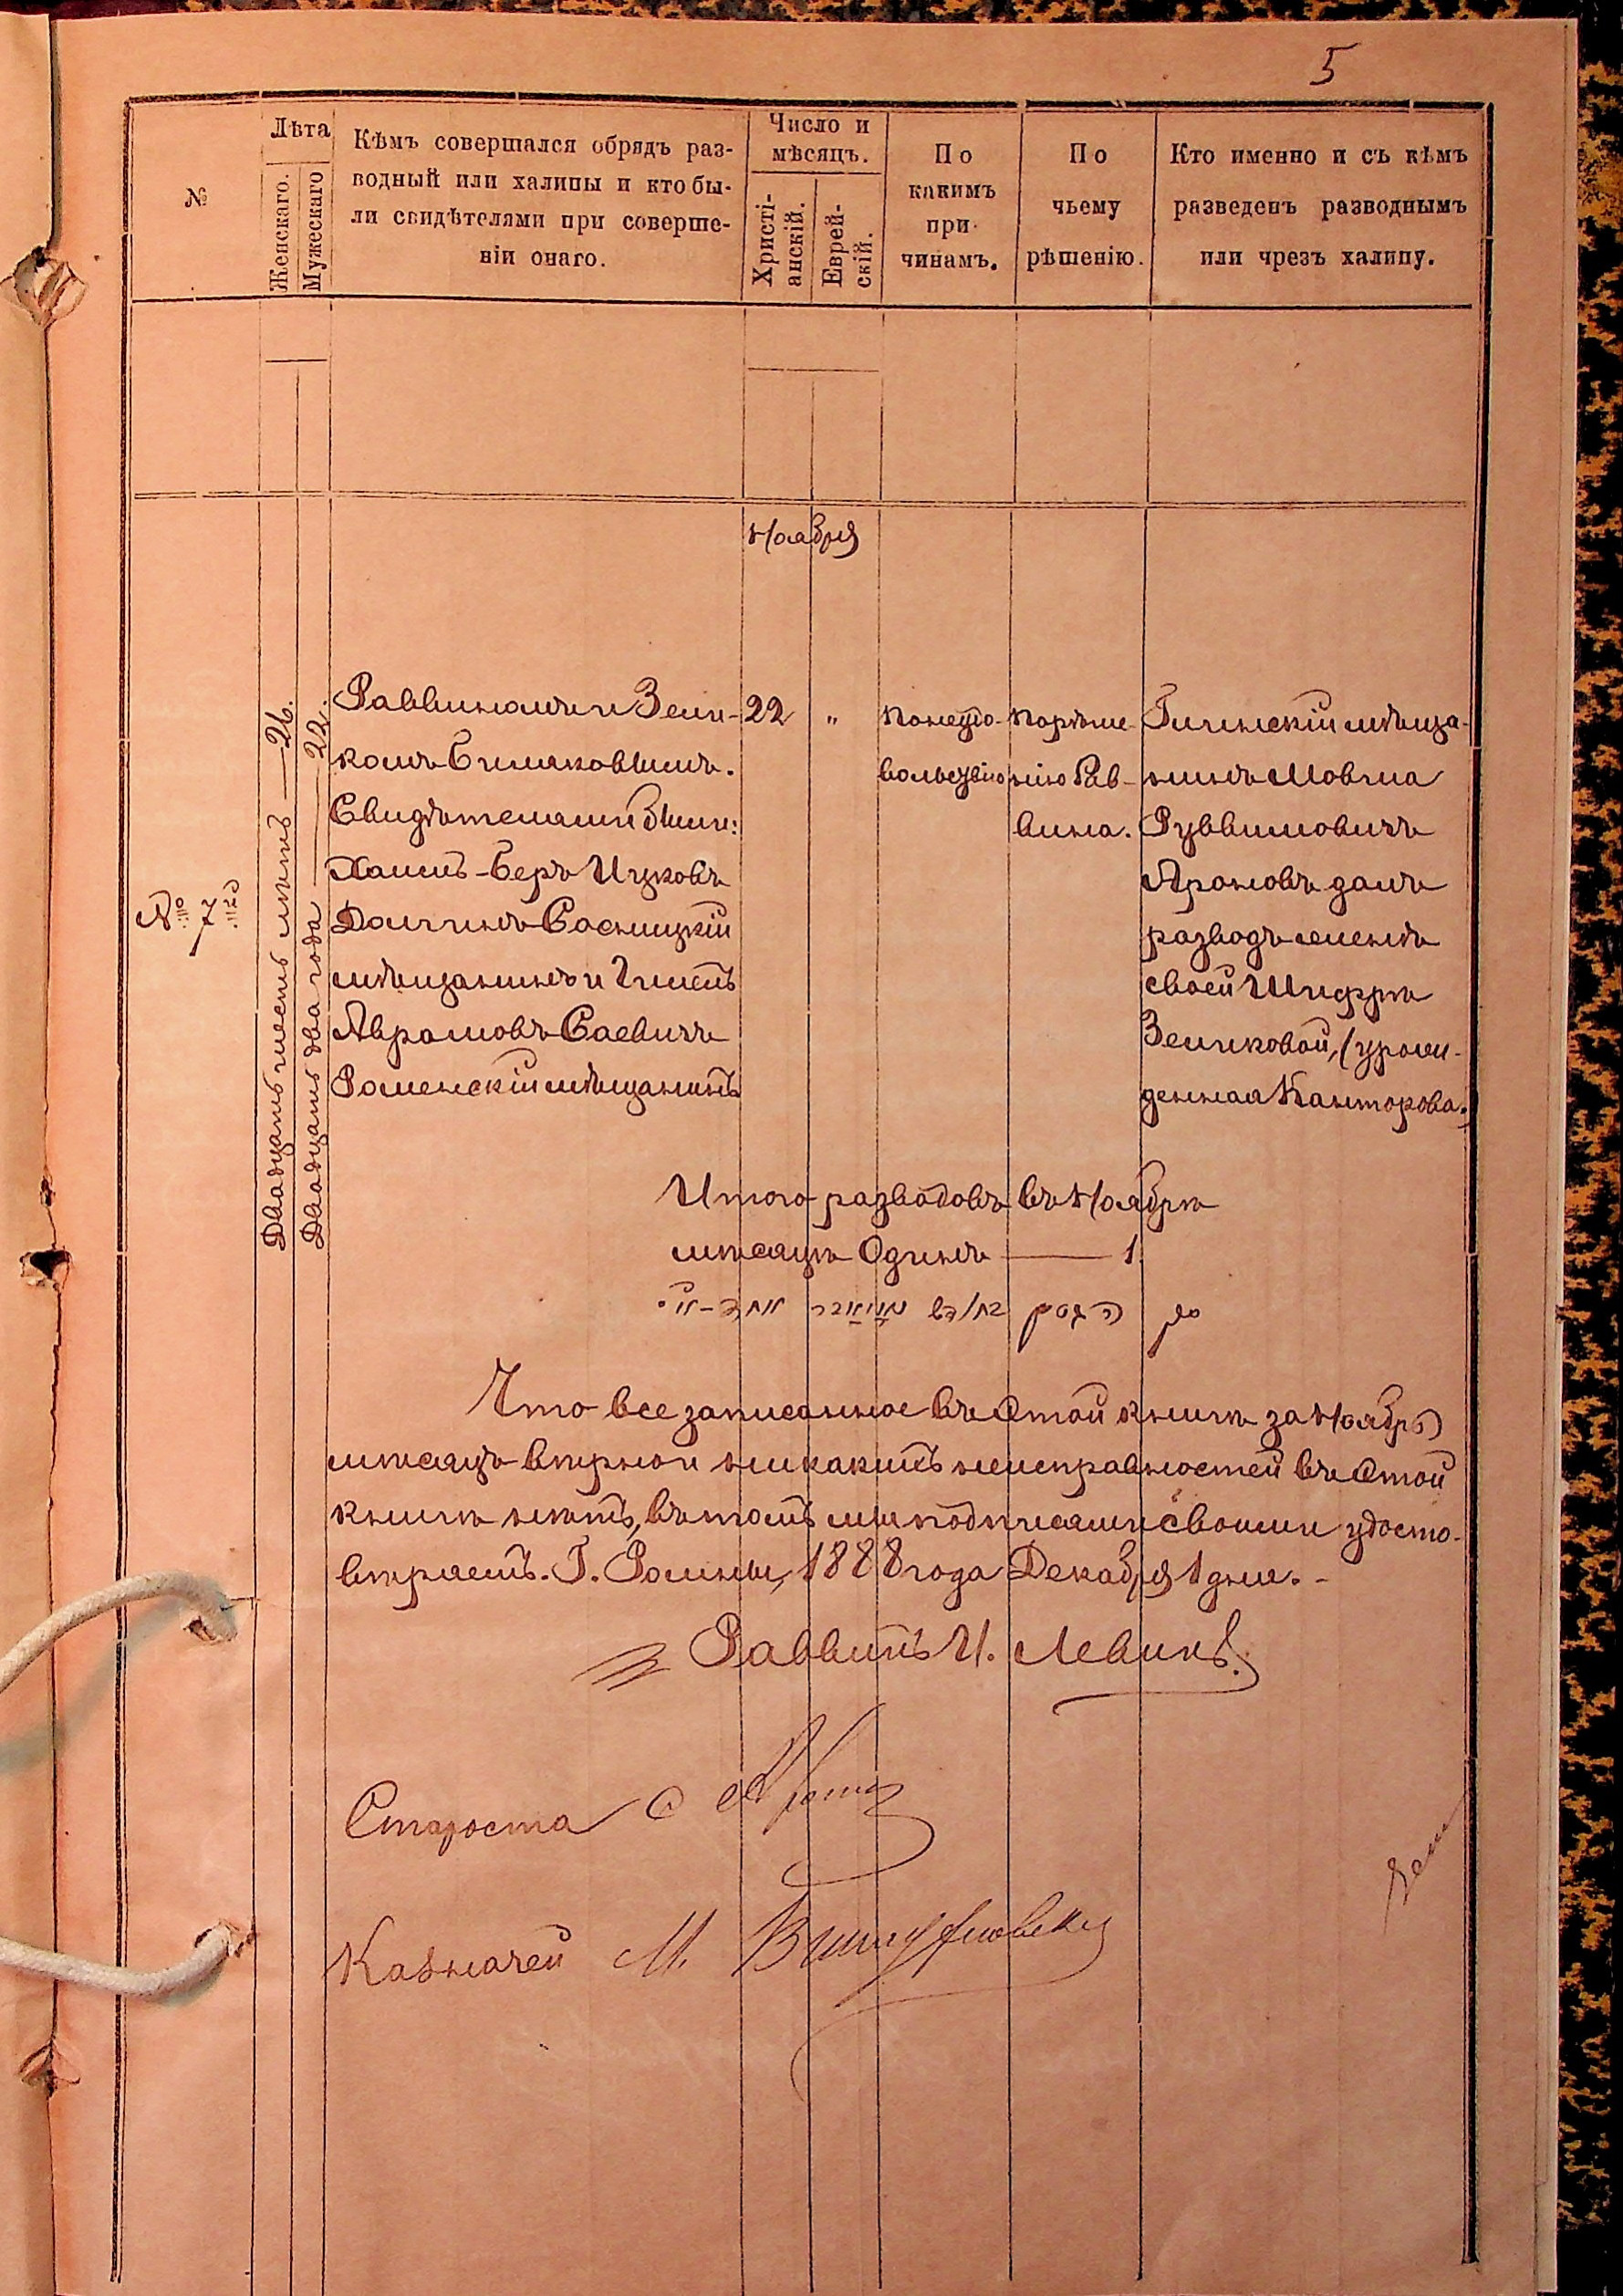 5
№
Лѣта
Женскаго.
Мужескаго
Кѣмъ совершался обрядъ раз-
водный или халицы и кто бы-
ли свидѣтелями при соверше-
ніи онаго.
Число и
мѣсяцъ.
Христі-
анскій.
Еврей-
скій.
По
какимъ
при-
чинамъ.
По
чьему
рѣшенію.
Кто именно и съ кѣмъ
разведенъ разводнымъ
или чрезъ халицу.
Ноября
№ 7й
Двадцать шесть лѣтъ — 26.
Двадцать два года — 22.
Раввинами Зели-
комъ
Свидѣтелями были:
Хаимъ-Беръ Ицковъ
Сосницкій
мѣщанинъ и
Аврамовъ
Роменскій мѣщанинъ
22
"
по неудо-
вольствію
по рѣше-
нію Рав-
вина.
мѣща-
нинъ Мовша
Руввимовичъ
Ароновъ далъ
разводъ женѣ
своей Шифрѣ
Зеликовой, (урож-
денная Канторова.)
Итого разводовъ въ Ноябрѣ
мѣсяцѣ Одинъ — 1.
Что все записанное въ этой книгѣ за Ноябрь
мѣсяцъ вѣрно и никакихъ неисправностей въ этой
книгѣ нѣтъ, въ томъ мы подписями своими удосто-
вѣряемъ. Г. Ромны, 1888 года Декабря 1 дня.-
Раввинъ И. Левинъ.
Староста С
Казначей М.